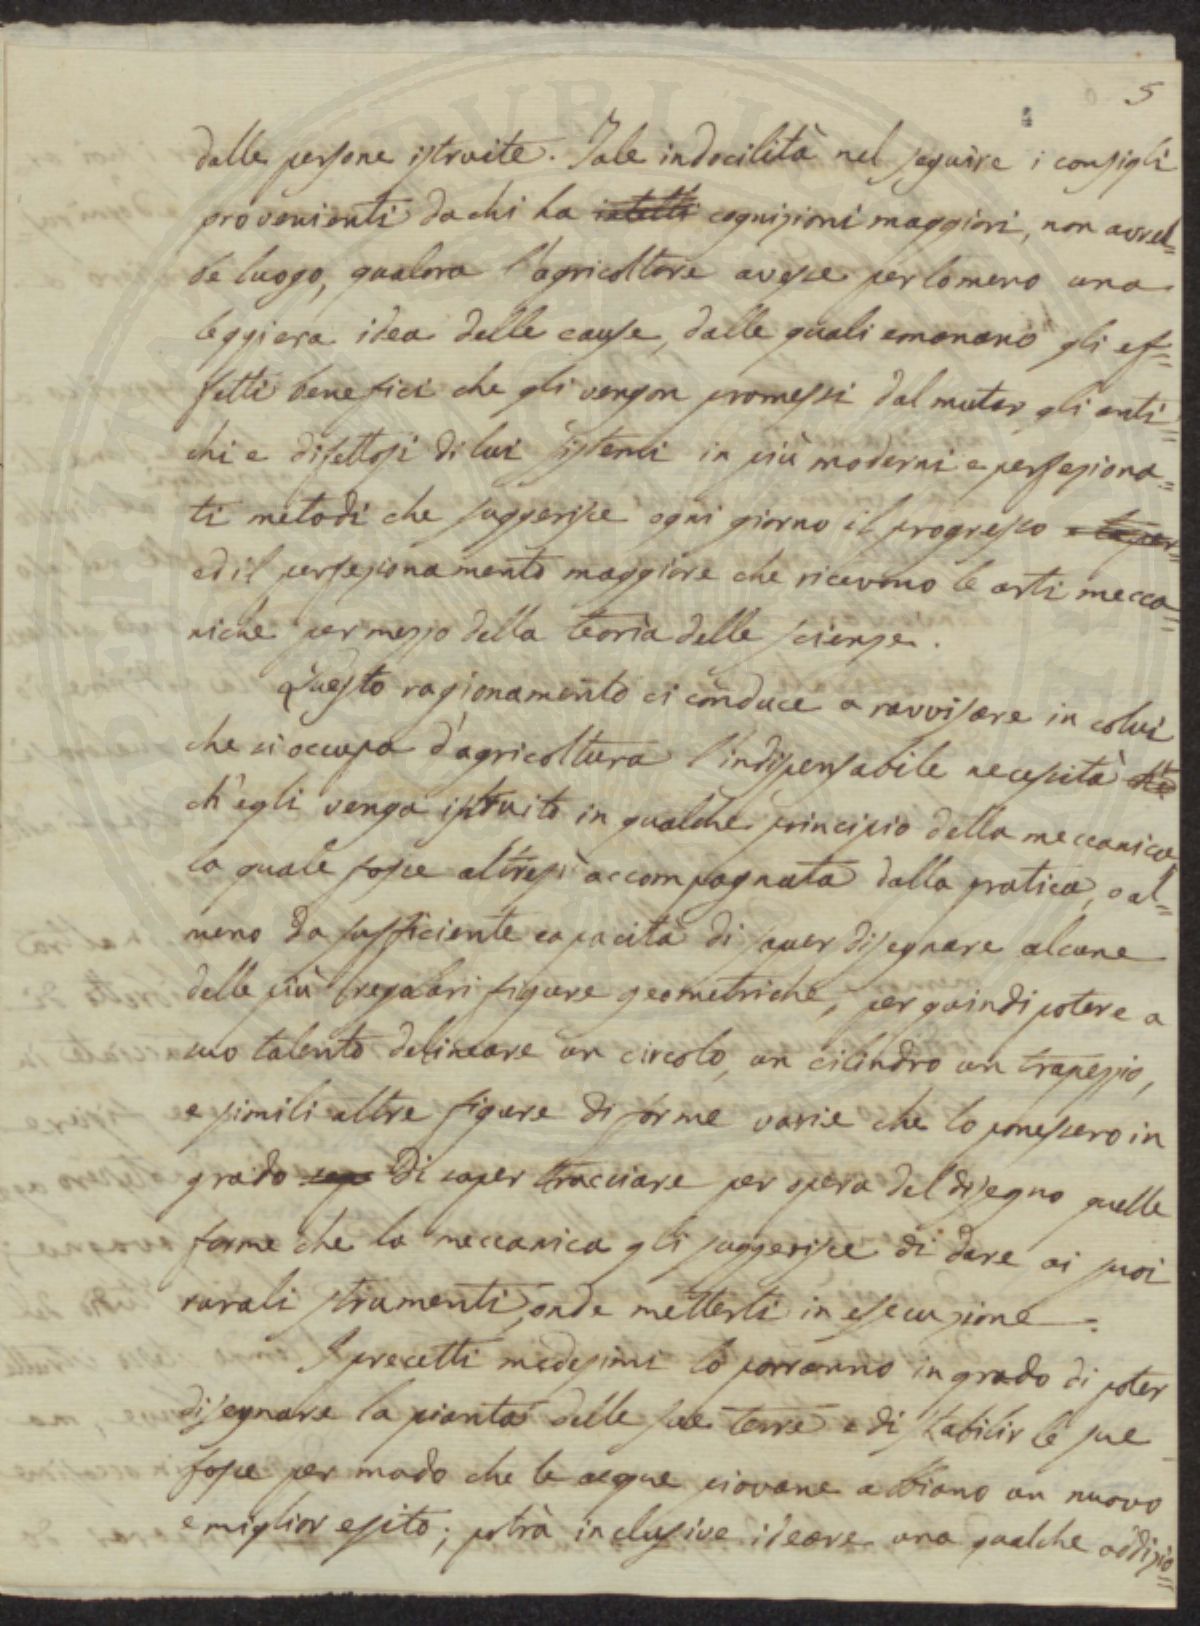 5
dalle persone istruite. Tale indocilità nel seguire i consigli
provenienti da chi ha intelli cognizioni maggiori, non avreb=
be luogo, qualora l'agricoltore avesse perlomeno una
leggiera idea delle cause, dalle quali emanano gli ef=
fetti benefici che gli vengon promessi dal mutar gli anti=
chi e difettosi di lui sistemi in più moderni e perfeziona=
ti metodi che suggerisce ogni giorno il progresso e la per=
ed il perfezionamento maggiore che ricevono le arti mecca=
niche per mezzo della teoria delle scienze.
Questo ragionamento ci conduce a ravvisare in colui
che si occupa d'agricoltura l'indispensabile necessità che
ch'egli venga istruito in qualche principio della meccanica
la quale fosse altresì accompagnata dalla pratica, o al=
meno da sufficiente capacità di saper disegnare alcune
delle più regolari figure geometriche, per quindi potere a
suo talento delineare un circolo, un cilindro un trapezio,
e simili altre figure di forme varie che lo ponessero in
grado sape di saper tracciare per opera del disegno quelle
forme che la meccanica gli suggerisce di dare ai suoi
rurali strumenti, onde metterli in esecuzione.
I precetti medesimi lo porranno in grado di poter
disegnare la pianta delle sue terre e di stabilir le sue
fosse per modo che le acque piovane abbiano un nuovo
e miglior esito; potrà inclusive ideare una qualche addizio=